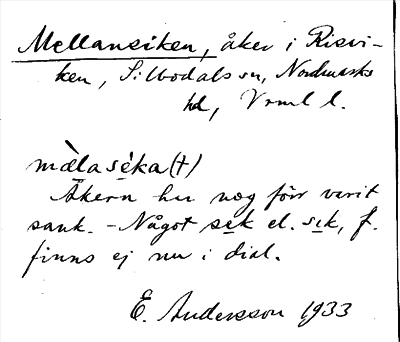 Mellansiken, åker i Risvi-
ken, Silbodals sn, Nordmarks
hd, Vrml l.
mèlasèka (+)
Åkern har nog förr varit
sank. - Något sek el. sik, f.
finns ej nu i dial.
E. Andersson 1933